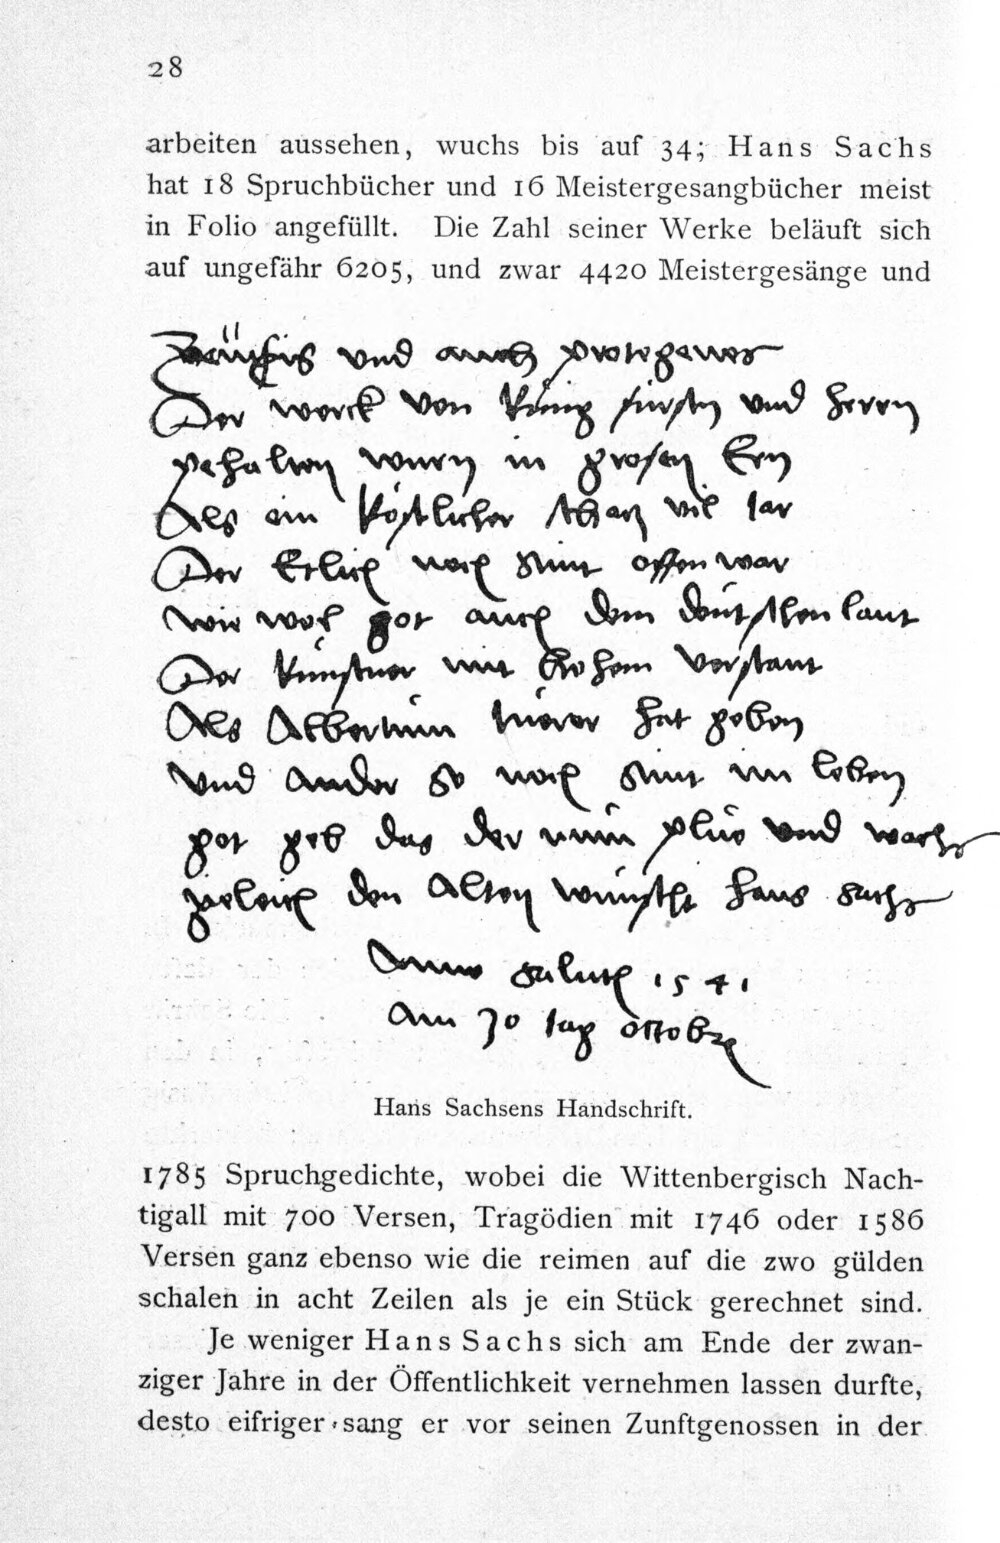 28
arbeiten aussehen, wuchs bis auf 34; Hans Sachs
hat 18 Spruchbücher und 16 Meistergesangbücher meist
in Folio angefüllt. Die Zahl seiner Werke beläuft sich
auf ungefähr 6205, und zwar 4420 Meistergesänge und
und auch protogenes
Der werck von Küng fürsten und herrn
gehalten wurn in grosen Ern
Als ein köstlicher schacz vil jar
Der Etlich noch sint offenwar
wie wol got auch dem deutschen lant
Der künstner mit hohem verstant
Als Albertum türer hat geben
und ander so noch sint im leben
got geb das der nun plüe und wachs
geleich den Alten wünscht hans sachs
Anno salutis 1541
am 30 tag octobr
Hans Sachsens Handschrift.
1785 Spruchgedichte, wobei die Wittenbergisch Nach-
tigall mit 700 Versen, Tragödien mit 1746 oder 1586
Versen ganz ebenso wie die reimen auf die zwo gülden
schalen in acht Zeilen als je ein Stück gerechnet sind.
Je weniger Hans Sachs sich am Ende der zwan-
ziger Jahre in der Öffentlichkeit vernehmen lassen durfte,
desto eifriger sang er vor seinen Zunftgenossen in der